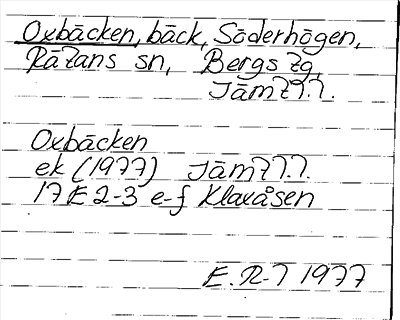 Oxbäcken, bäck, Söderhögen,
Rätans sn, Bergs tg,
Jämtl.l.
Oxbäcken
ek (1977) Jämtl.l.
17 E 2-3 e-f Klaxåsen
1977